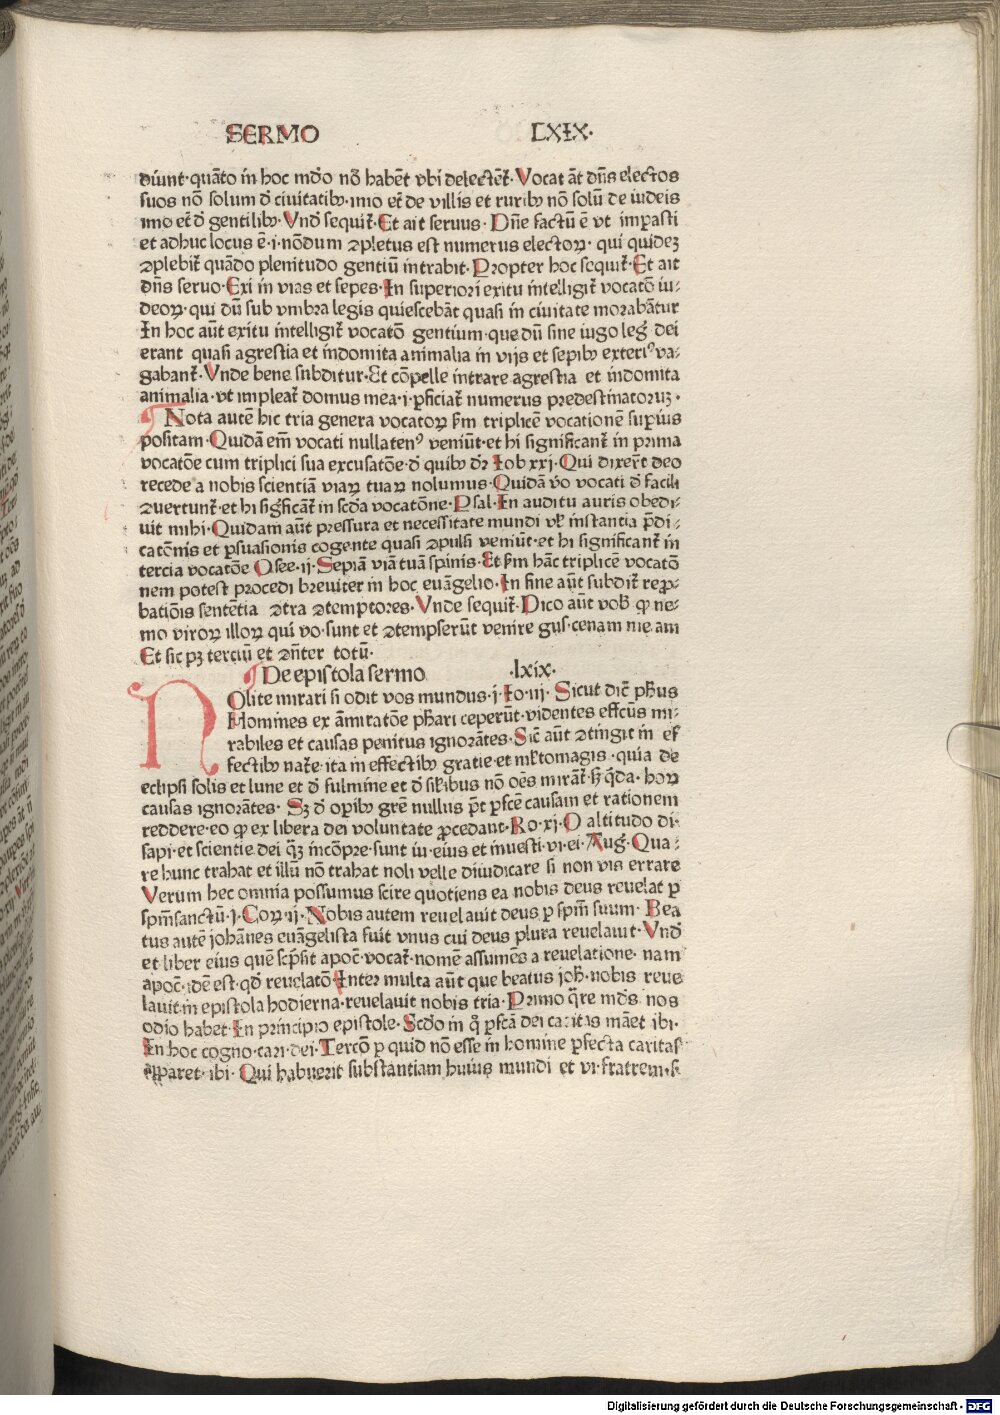 SERMO LXIX·
diunt·quãto in hoc mdo nõ habẽt vbi delectẽt᷑·Vocat ãt dñs electos
suos nõ solum đ ciuitatibꝫ·imo et đe villis et ruribꝫ nõ solũ de iudeis
imo et đ gentilibꝫ·Vnđ sequit᷑·Et ait seruus·Dñe factũ ẽ vt imꝑasti
et adhuc locus ẽ·i·nõdum ꝯpletus est numerus electoꝝ·qui quideꝫ
ꝯplebit᷑ quãdo plenitudo gentiũ intrabit·Propter hoc sequit᷑·Et ait
dñs seruo·Exi in vias et sepes·In superiori exitu intelligit᷑ vocatõ iu-
deoꝝ·qui dũ sub vmbra legis quiescebãt quasi in ciuitate morabãtur
In hoc aũt exitu intelligit᷑ vocatõ gentium·que dũ sine iugo leg᷑ dei
erant quasi agrestia et indomita animalia in vijs et sepibꝫ exteriꝰ va-
gabant᷑·Vnde bene subditur·Et cõpelle intrare agrestia et indomita
animalia·vt impleat᷑ domus mea·i·ꝑficiat᷑ numerus predestinatoruꝫ·
¶ Nota autẽ hic tria genera vocatoꝝ ẜm triplicẽ vocationẽ suꝑius
positam·Quidã em̃ vocati nullatenꝰ veniũt·et hi significant᷑ in prima
vocatõe cum triplici sua excusatõe·đ quibꝫ dr̃ Iob xxj·Qui dixer̃t deo
recede a nobis scientiã viaꝝ tuaꝝ nolumus·Quidã v̊o vocati đ facili
ꝯuertunt᷑·et hi sigñficãt᷑ in scđa vocatõne·Psal·In auditu auris obedi-
uit mihi·Quidam aũt pressura et necessitate mundi vl᷑ instantia p̃di-
catõnis et ꝑsuasionis cogente quasi ꝯpulsi veniũt·et hi significant᷑ in
tercia vocatõe Osee·ij·Sepiã viã tuã spinis·Et ẜm hãc triplicẽ vocatõ
nem potest procedi breuiter in hoc euãgelio·In fine aũt subdit᷑ reꝓ-
batiõis sentẽtia ꝯtra ꝯtemptores·Vnde sequit᷑·Dico aũt vob̃ ꝙ ne-
mo viroꝝ illoꝝ qui vo·sunt et ꝯtempserũt venire gus·cenam meam
Et sic pꝫ terciũ et ꝯñter totũ·
¶ De epistola sermo ·lxix·
NOlite mirari si odit vos mundus·j·Io·iij·Sicut dic̃ ph̃us
Homines ex ãmiratõe ph̃ari ceperũt·videntes effc̃us mi-
rabiles et causas penitus ignorãtes·Sic̃ aũt ꝯtingit in ef
fectibꝫ nat᷑e·ita in effectibꝫ gratie·et ml᷑tomagis·quia de
eclipsi solis et lune et đ fulmine et đ sil᷑ibus nõ oẽs mirãt᷑·sꝫ q̃da·hoꝝ
causas ignorãtes· Sꝫ đ oꝑibꝫ gr̃e nullus p̃t ꝑfc̃e causam et rationem
reddere·eo ꝙ ex libera dei voluntate ꝓcedant·Ro·xj·O altitudo di-
sapi·et scientie dei q̃ꝫ incõpre·sunt iu·eius et inuesti·vi·ei·Aug᷑·Qua-
re hunc trahat et illũ nõ trahat noli velle diiudicare si non vis errare
Verum hec omnia possumus scire quotiens ea nobis deus reuelat ꝑ
spm̃sanctũ·j·Coꝝ·ij·Nobis autem reuelauit deus ꝑ spm̃ suum·Bea
tus autẽ johãnes euãgelista fuit vnus cui deus plura reuelauit·Vnđ
et liber eius quẽ sc̃psit apoc̃·vocat᷑·nomẽ assumẽs a reuelatione·nam
apoc̃·idẽ est·qđ reuelatõ Inter multa aũt que beatus joh̃·nobis reue
lauit·in epistola hodierna·reuelauit nobis tria·Primo q̃re mđs nos
odio habet In principio epistole·Scđo in q̊ ꝑfcã dei caritas mãet ibi·
In hoc cogno·cari·dei·Tercõ ꝑ quid nõ esse in homine ꝑfecta caritas
apparet·ibi·Qui habuerit substantiam huius mundi et vi·fratrem·s·
Digitalisierung gefördert durch die Deutsche Forschungsgemeinschaft · DFG